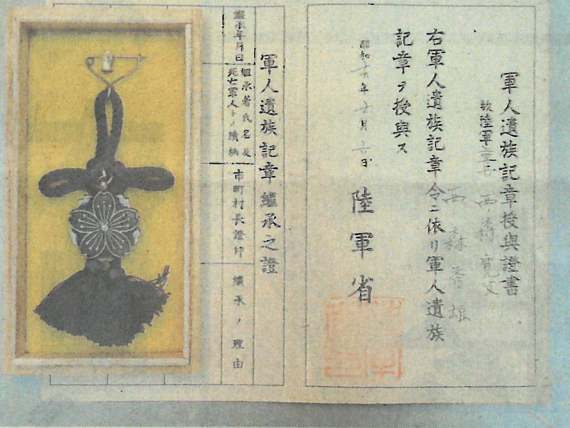 軍人遺族記章授與證書
故陸軍
西森
右軍人遺族記章令ニ依リ軍人遺族
記章ヲ授與ス
昭和十六年
陸軍省
軍人遺族記章繼承之證
繼承年月日
繼承者氏名及
死亡軍人トノ續柄
市町村長證印
繼承ノ理由